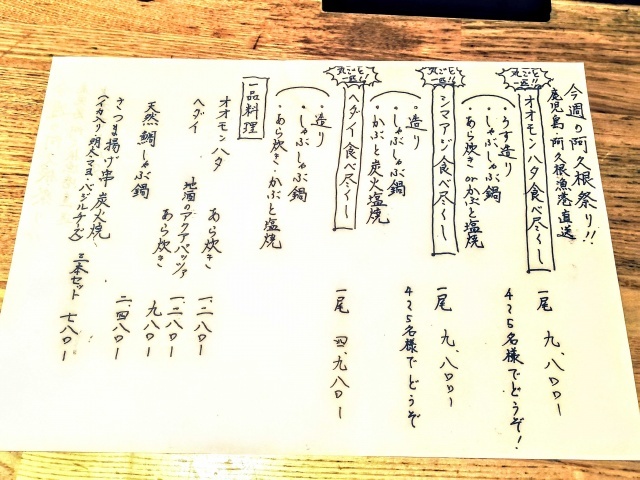 今週の阿久根祭り!!
鹿児島・阿久根漁港直送
丸ごと一匹!!
オオモンハタ食べ尽くし 一尾 九、八〇〇ー
・うす造り 4~5名様でどうぞ!
・しゃぶしゃぶ鍋
・あら炊き orかぶと塩焼
丸ごと一匹!!
シマアジ食べ尽くし 一尾 九、八〇〇ー
・造り 4~5名様でどうぞ
・しゃぶしゃぶ鍋
・かぶと炭火塩焼
丸ごと一匹!!
ヘダイ食べ尽くし 一尾 四、九八〇ー
・造り
・しゃぶしゃぶ鍋
あら炊き・かぶと塩焼
一品料理
オオモンハタ あら炊き 一、二八〇ー
ヘダイ 地酒のアクアパッツァ 一、二八〇ー
あら炊き 九八〇ー
天然鯛しゃぶ鍋 二、四八〇ー
さつま揚げ串炭火焼 三本セット 七八〇ー
(イカ入り・明太マヨ・バジルチーズ)